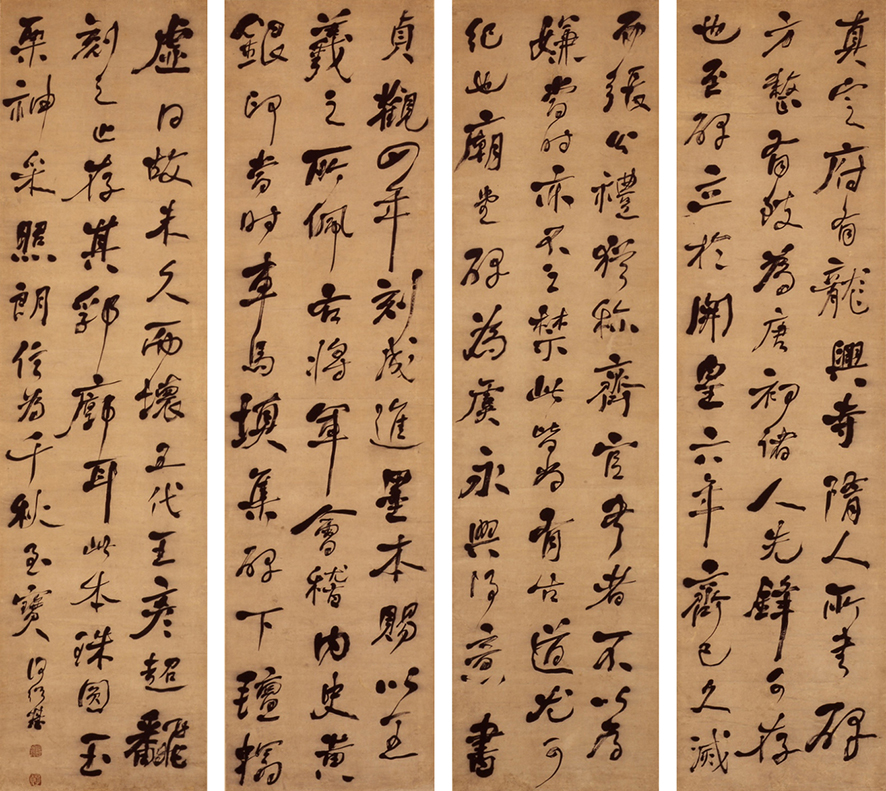 真定府有龍興寺隋人所書碑
方整有致為唐初諸人先鋒可存
也至碑立於開皇六年齊已久滅
而張公禮猶稱齊官書者不以為
嫌當時亦不之禁此皆為有古道尤可
紀也廟堂碑為虞永興得意書
貞觀四年刻成進墨本賜以王
羲之所佩右將軍會稽內史黃
銀印當時車馬填集碑下氊搨
虛日故未久而壞五代王彥超翻
刻之止存其郛廓耳此本珠圓玉
栗神采照朗信為千秋至寶 何紹基